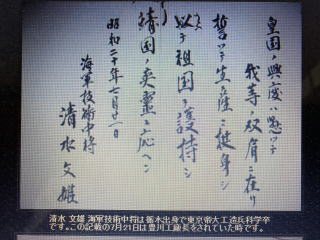 皇国ノ興廃ハ懸ツテ
我等ノ双肩ニ在リ
誓ツテ生産ニ挺身シ
以テ祖国ヲ護持シ
靖国ノ英霊ニ応ヘン
昭和二十年七月廿一日
海軍技術中将
清水文雄
清水 文雄 海軍技術中将は栃木出身で東京帝大工造兵科学卒
です。この記載の7月21日は豊川工廠長をされていた時です。